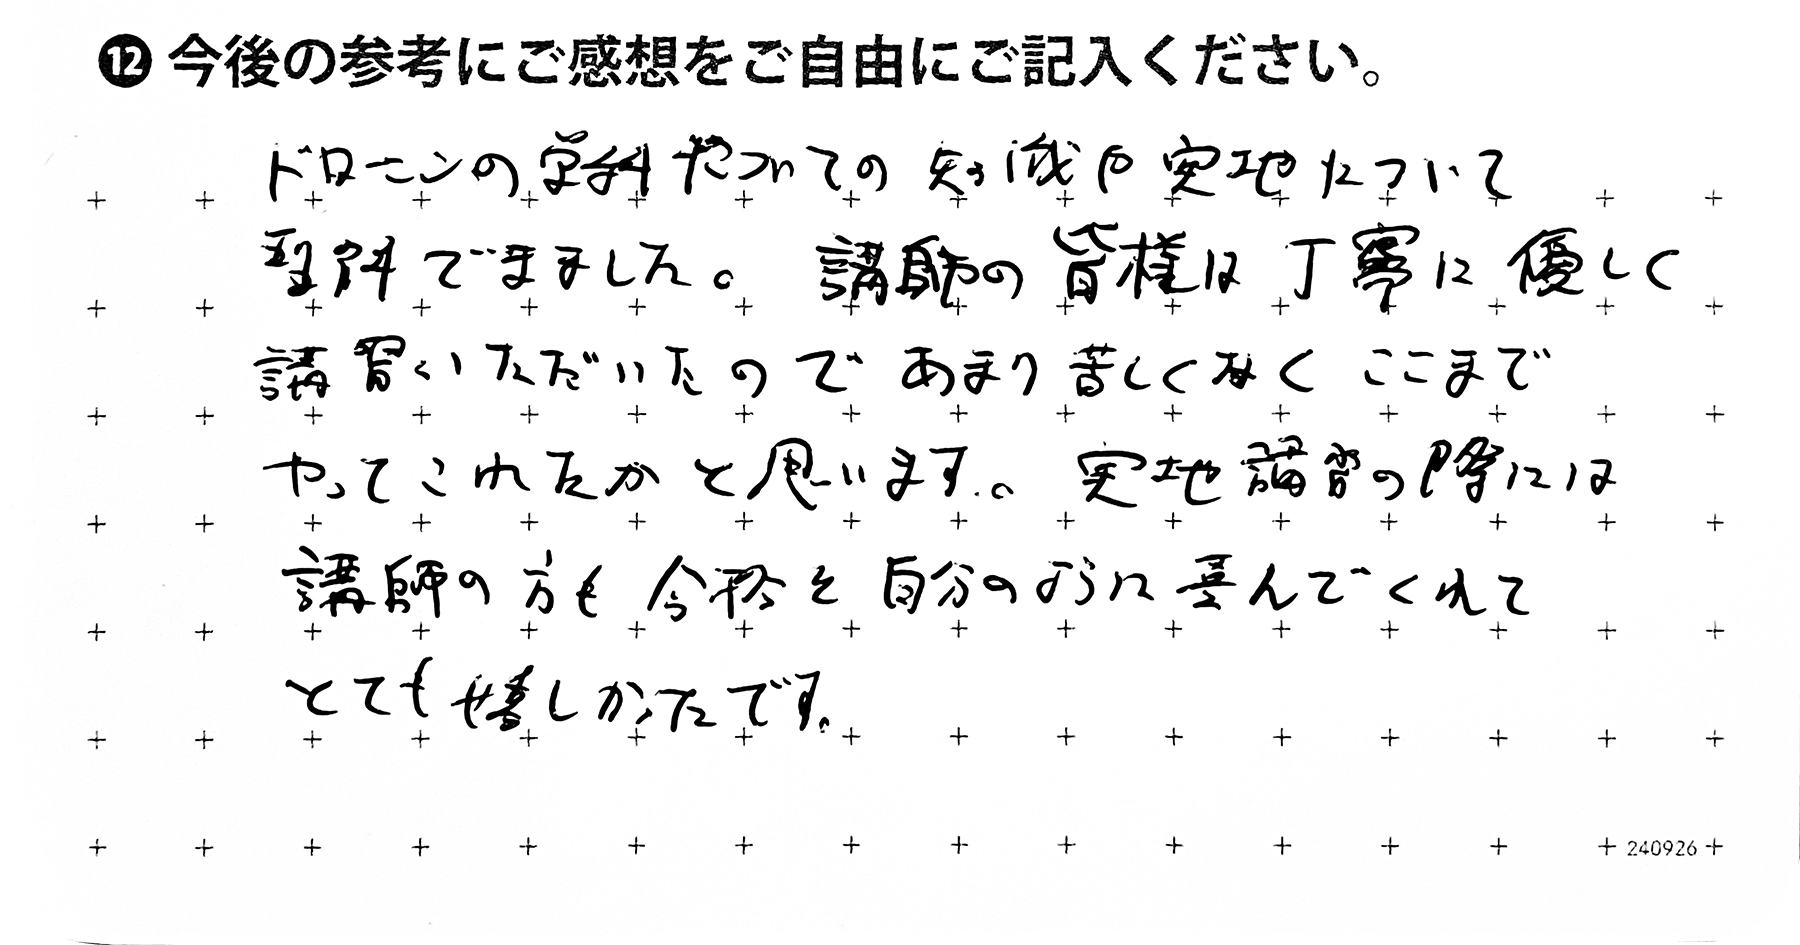 ⓬ 今後の参考にご感想をご自由にご記入ください。
ドローンの学科についての知識や実地について
理解できました。 講師の皆様は丁寧に優しく
講習いただいたので あまり苦しくなく ここまで
やってこれたかと思います。 実地講習の際には
講師の方も合格を自分のように喜んでくれて
とても嬉しかったです。
240926